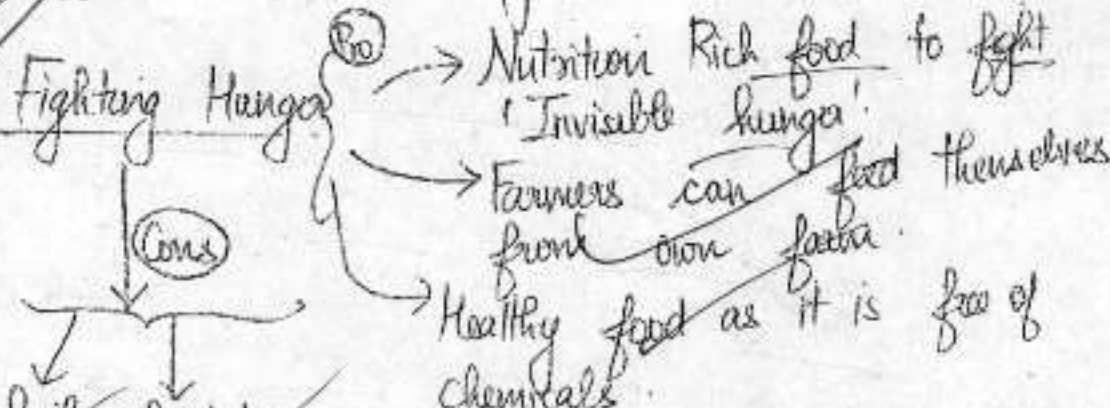 Pro
Fighting Hunger
Nutrition Rich food to fight
'Invisible hunger'.
Farmers can feed themselves
from own farm.
Healthy food as it is free of
chemicals.
Cons